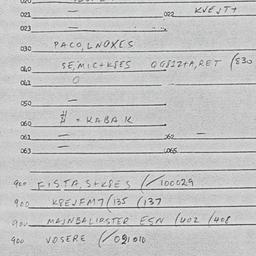 020
021 — 022 KVEJTT
023 —
030 PACO, LNOXES
040 SE, MIC+KSES OGSIZ+A, RET /530
041 0
050 —
060 $ = KABAK
061 — 062 —
063 — 065
900 FISTA, S+KSES // 100029
900 KSEJFM7/135 /137
900 MAJNBALIPSTER ESN /402 /408
900 VOSERE // 091010